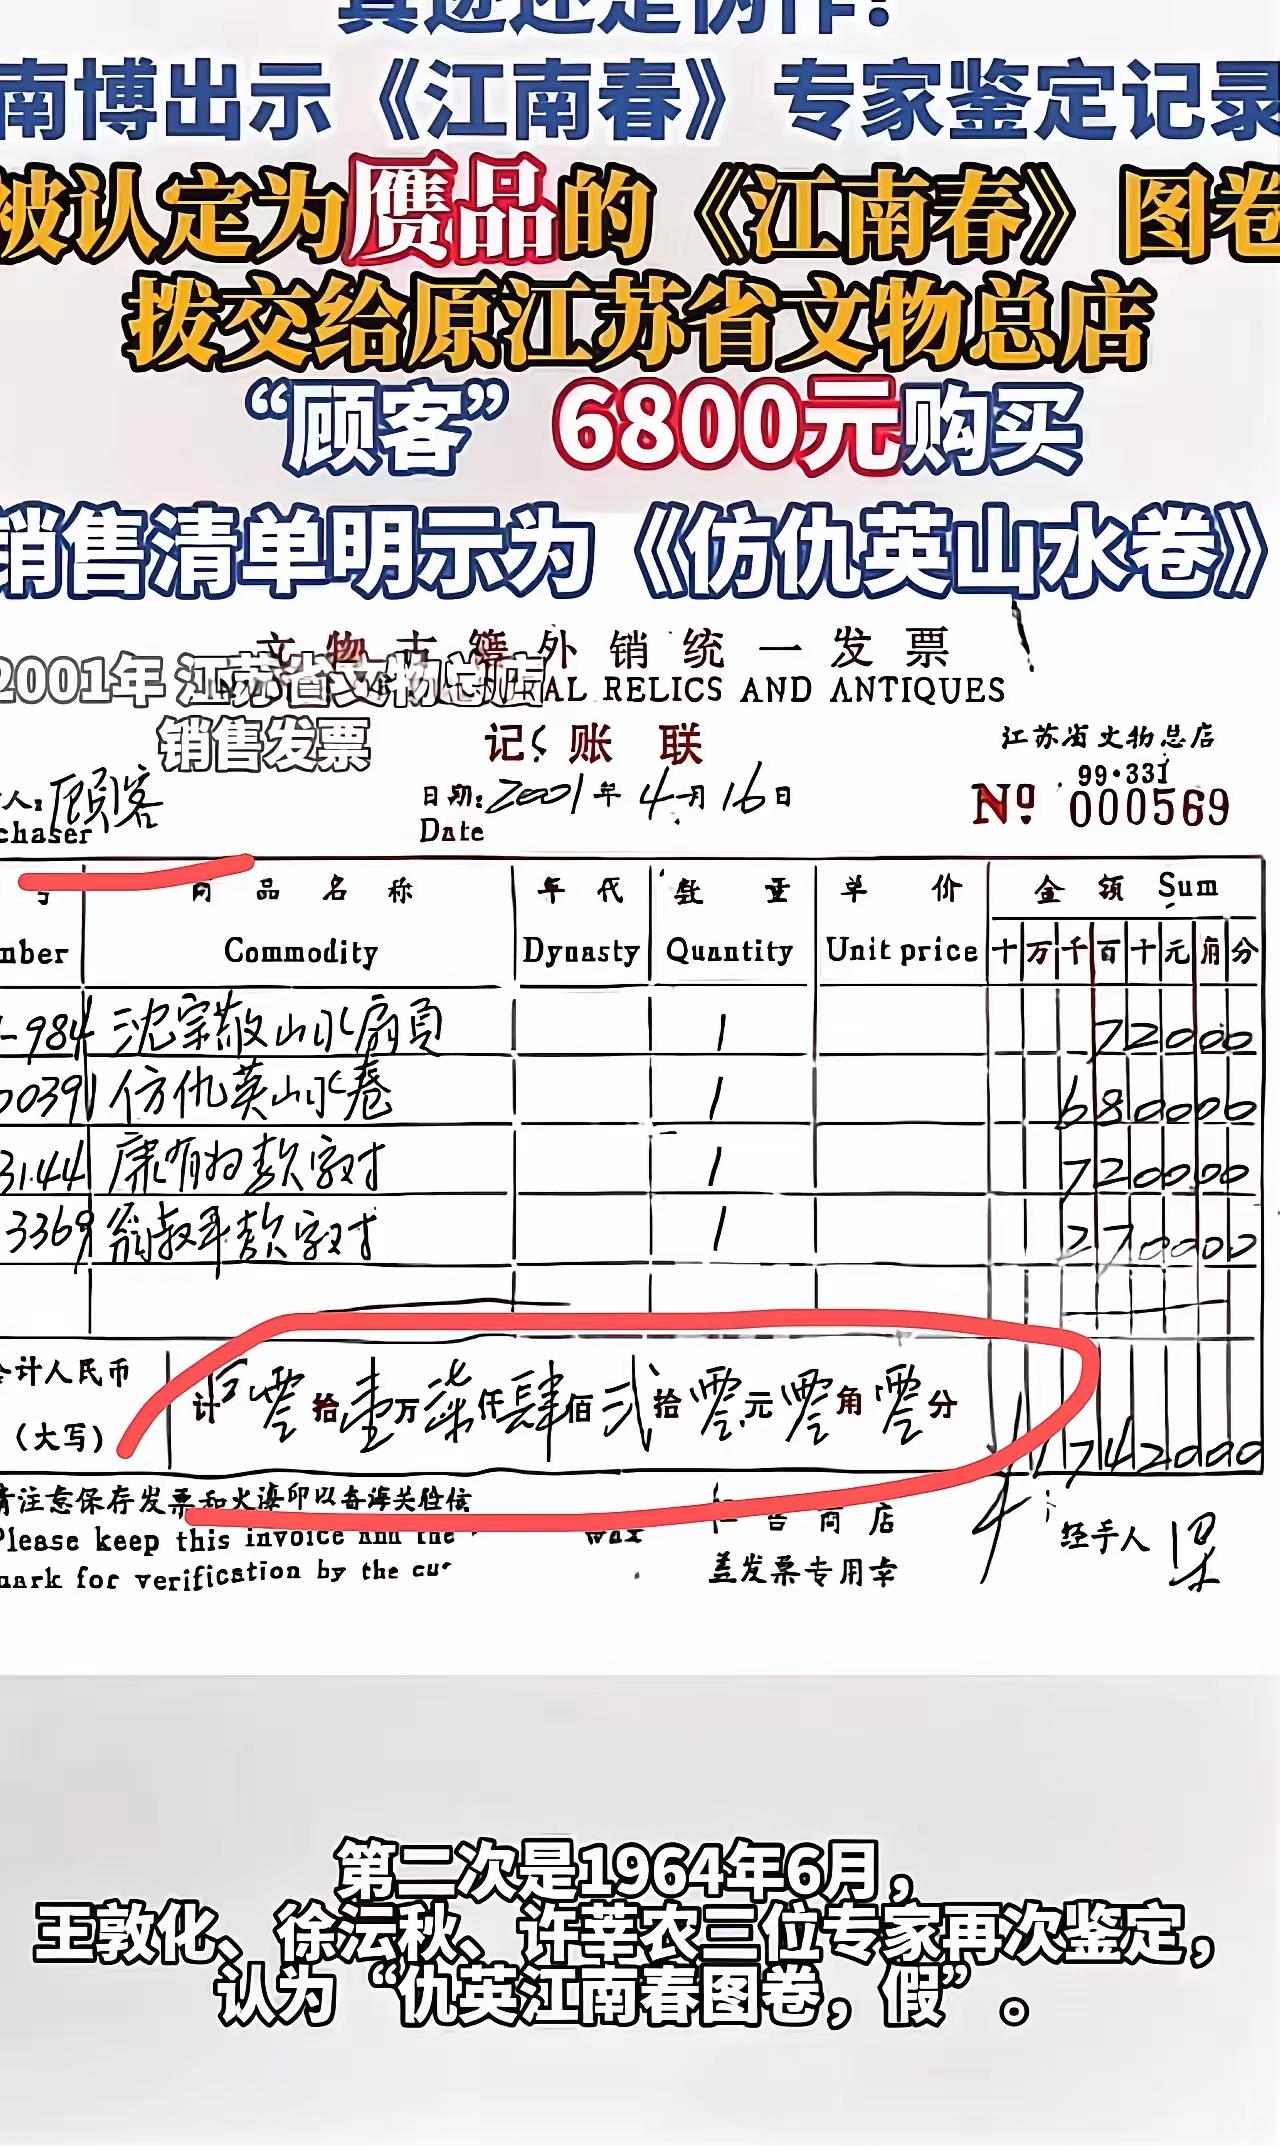 真迹还是伪作？
南博出示《江南春》专家鉴定记录
被认定为赝品的《江南春》图卷
拨交给原江苏省文物总店
“顾客”6800元购买
销售清单明示为《仿仇英山水卷》
外销统一发票
AL RELICS AND ANTIQUES
2001年 江苏省文物总店
销售发票
记账联
江苏省文物总店
99·331
人: 顾客
chaser
日期: 2001年4月16日
Date
№ 000569
号 商品名称 年代 数量 单价 金额 Sum
mber Commodity Dynasty Quantity Unit price 十万千百十元角分
-984 沈宗敬山水扇頁 1 72000
00391 仿仇英山水卷 1 680000
31.44 康有为款字对 1 720000
3369 翁叔平款字对 1 270000
合计人民币
（大写）
计 零拾壹万柒仟肆佰贰拾零元零角零分 1742000
请注意保存发票和火漆印以备海关验核
Please keep this invoice and the wax
mark for verification by the cu
售商店
盖发票专用章
经手人
第二次是1964年6月，
王敦化、徐沄秋、许莘农三位专家再次鉴定，
认为“仇英江南春图卷，假”。